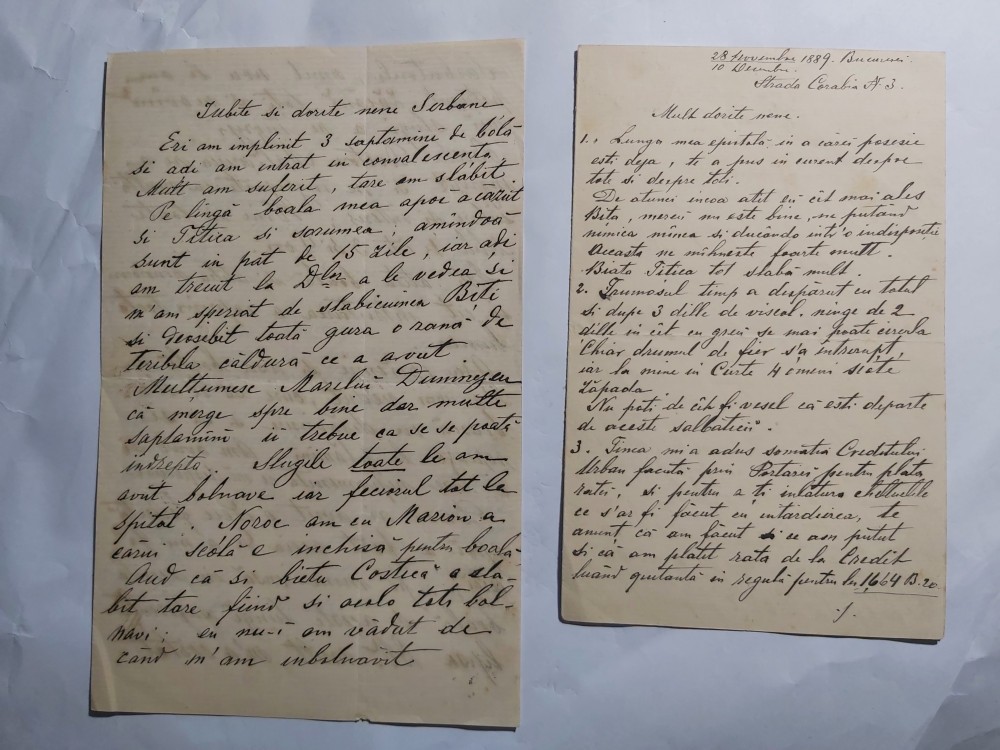 Iubite si dorite nene Serbane
Eri am implinit 3 saptamini de bólă
si adi am intrat in convalescenta.
Mult am suferit, tare am slăbit.
Pe lingă boala mea apoi a căzut
si Titica si sorumea; amindoă
sunt in pat de 15 zile, iar adi
am trecut la Dlor a le vedea si
m'am speriat de slabiciunea Biti
si deosebit toată gura o rană de
teribila căldură ce a avut.
Multumesc Marelui Dumnezeu
că merge spre bine dar multe
saptamini ii trebue ca se se poată
indrepta. Slugile toate le am
avut bolnave iar feciorul tot la
spital. Noroc am cu Marion a
cărui scólă e inchisă pentru boală
Aud că si bietu Costică a sla-
bit tare fiind si acolo toti bol-
navi; eu nu-i am vădut de
când m'am inbolnavit
28 Novembre 1889. Bucuresci.
10 Decembre.
Strada Corabia N. 3.
Mult dorite nene.
1., Lunga mea epistolă in a cărei posesie
esti deja, te a pus in curent despre
tote si despre toti.
De atunci incoa atit eu cit mai ales
Bita, mereu nu este bine, ne putând
nimica minca si ducăndo intr'o indispositie
Aceasta ne mihneste foarte mult.
Biata Titica tot slabă mult.
2. Frumosul timp a dispărut cu totul
si dupe 3 dille de viscol. ninge de 2
dille in cit cu greu se mai poate circula
Chiar drumul de fier s'a intrerupt,
iar la mine in Curte 4 omeni scóte
Zăpada
Nu poti de cit fi vesel că esti departe
de aceste salbaticii.
3. Tinca mi a adus somatia Creditului
Urban facută prin Portarei pentru plata
ratei, si pentru a ti inlatura cheltuelile
ce s'ar fi făcut cu intărdierea, te
anunt că am făcut si ce am putut
si că am platit rata de la Credit
luând quitantă in regulă pentru lei 1,664 B. 20
./.